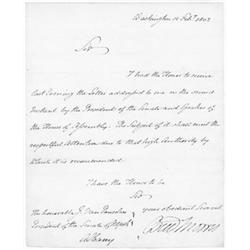 Washington 10 Feby. 1802
Sir
I had the Honor to receive
last Evening the Letter addressed to me on the second
Instant by the President of the Senate and Speaker of
the House of Assembly. The Subject of it shall meet the
respectful Attention due to that high Authority by
which it is recommended.
I have the Honor to be
Sir
The honorable J. Van Rensselaer
your obedient Servant
President of the Senate of
Gouv Morris
Albany